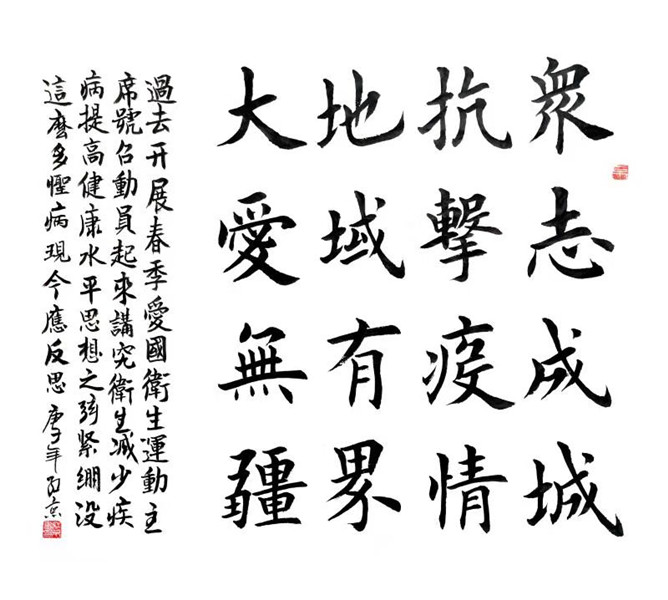 衆志成城
抗擊疫情
地域有界
大愛無疆
過去开展春季愛國衛生運動主
席號召動員起來講究衛生减少疾
病提高健康水平思想之弦緊綳没
這麽多怪病現今應反思庚子年